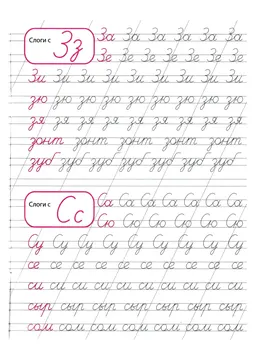 Слоги с Зз За За За За За
Зе Зе Зе Зе Зе
Зи Зи Зи Зи Зи Зи Зи
зю зю зю зю зю зю зю зю
зя зя зя зя зя зя зя зя
зонт зонт зонт зонт зонт
зуб зуб зуб зуб зуб зуб зуб
Слоги с Сс Са Са Са Са Са Са
Сю Сю Сю Сю Сю Сю
Су Су Су Су Су Су Су Су
се се се се се се се се
си си си си си си си си
сыр сыр сыр сыр сыр сыр сыр
сом сом сом сом сом сом сом